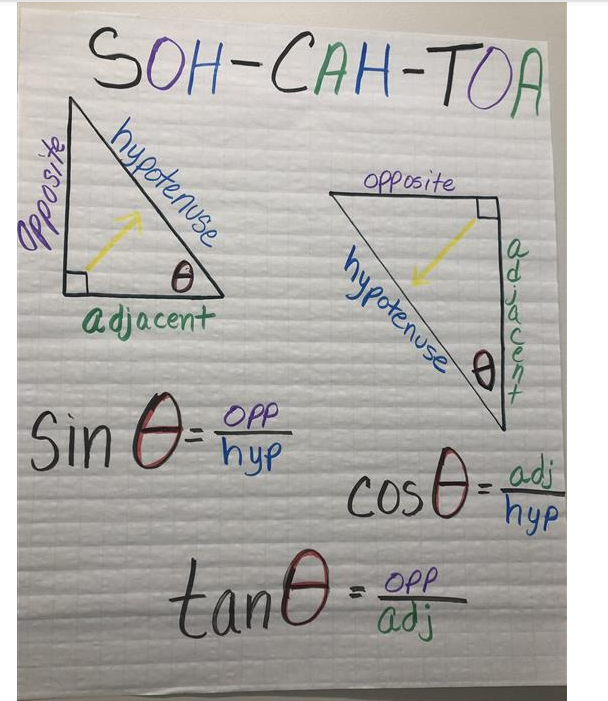 SOH-CAH-TOA
opposite
hypotenuse
θ
adjacent
opposite
hypotenuse
adjacent
θ
sin θ = opp/hyp
cos θ = adj/hyp
tan θ = opp/adj